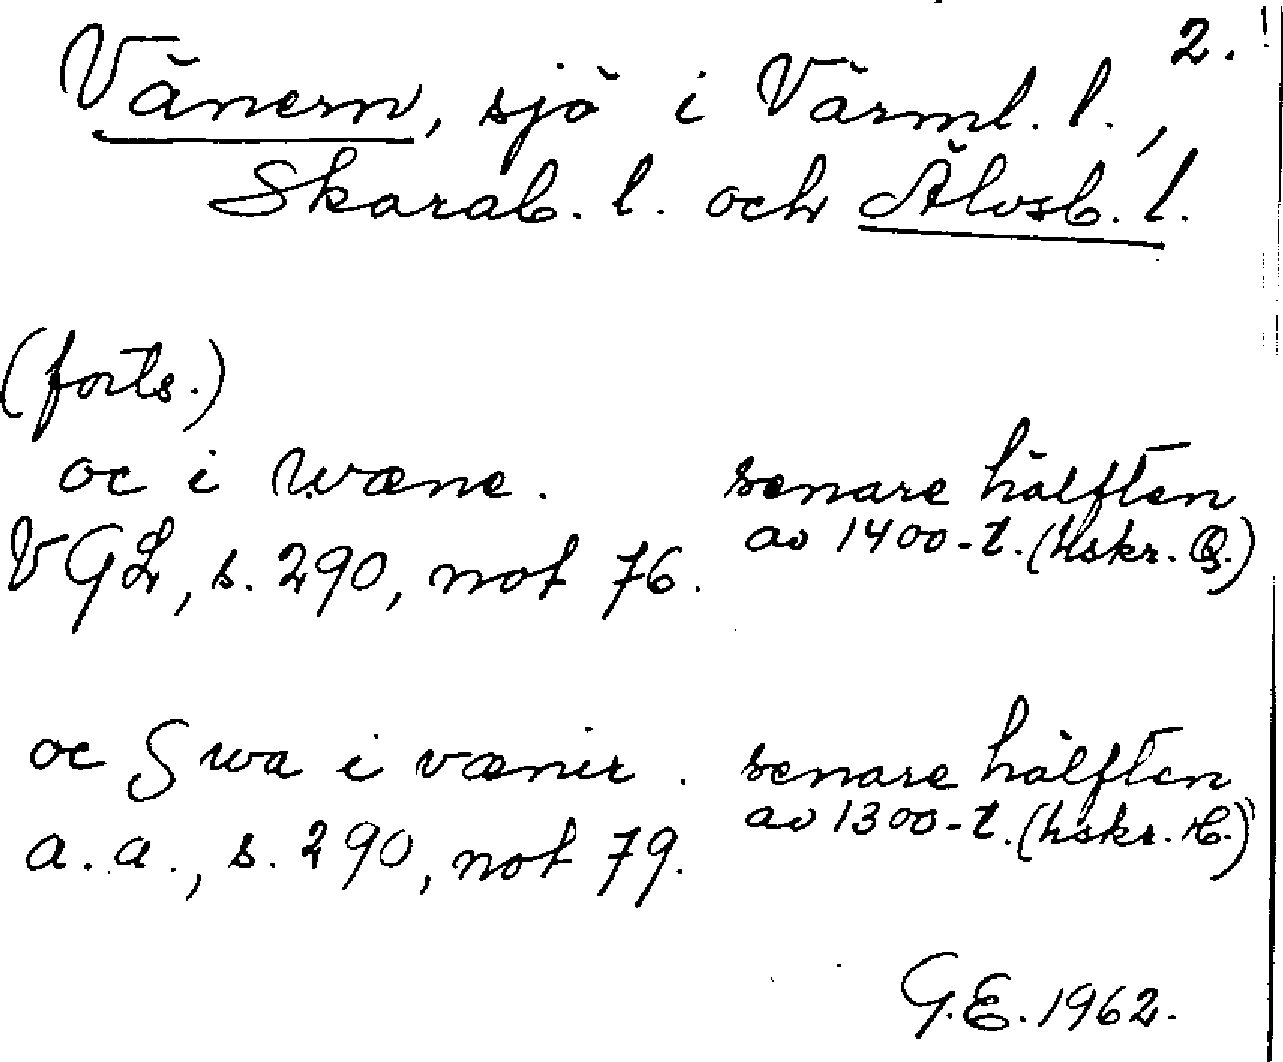 2.
Vänern, sjö i Värml. l.,
Skarab. l. och Älvsb. l.
(forts.)
oc i wæne. senare hälften
VGL, s. 290, not 76. av 1400-t. (hskr. B.)
oc Swa i vænir. senare hälften
a.a., s. 290, not 79. av 1300-t. (hskr. C.)
G.E. 1962.